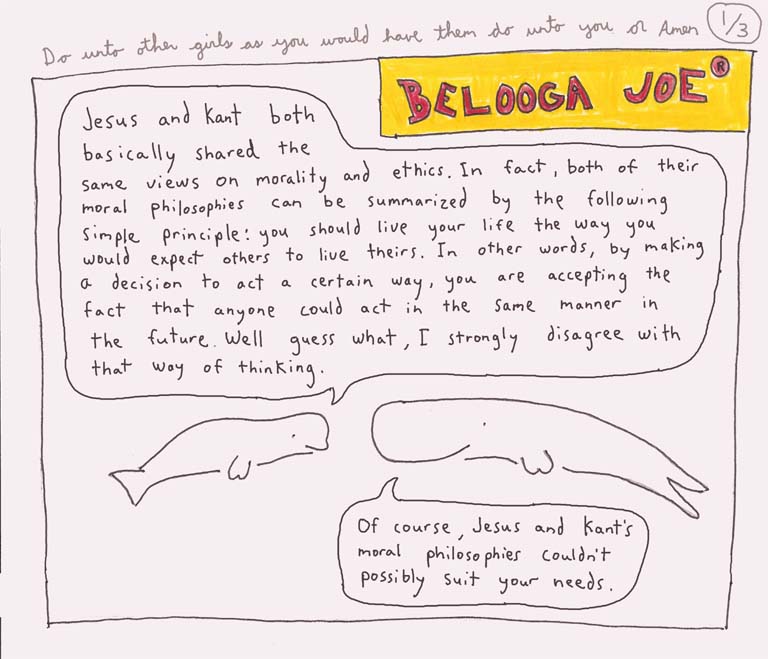 Do unto other girls as you would have them do unto you or Amen
1/3
BELOOGA JOE®
Jesus and Kant both
basically shared the
same views on morality and ethics. In fact, both of their
moral philosophies can be summarized by the following
simple principle: you should live your life the way you
would expect others to live theirs. In other words, by making
a decision to act a certain way, you are accepting the
fact that anyone could act in the same manner in
the future. Well guess what, I strongly disagree with
that way of thinking.
Of course, Jesus and Kant's
moral philosophies couldn't
possibly suit your needs.